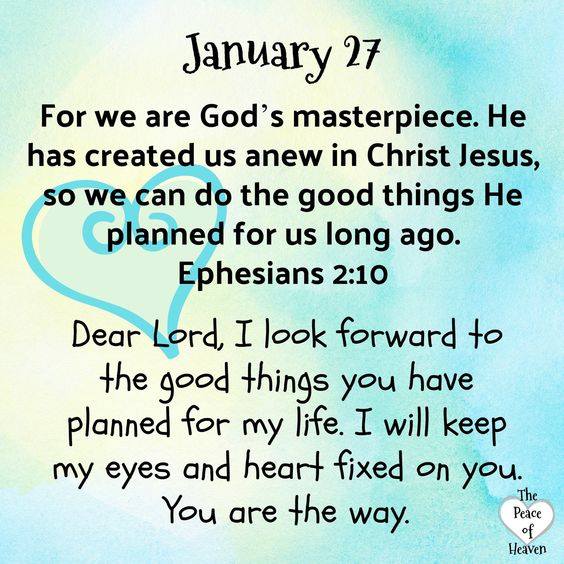 January 27
For we are God's masterpiece. He
has created us anew in Christ Jesus,
so we can do the good things He
planned for us long ago.
Ephesians 2:10
Dear Lord, I look forward to
the good things you have
planned for my life. I will keep
my eyes and heart fixed on you.
You are the way.
The
Peace
of
Heaven